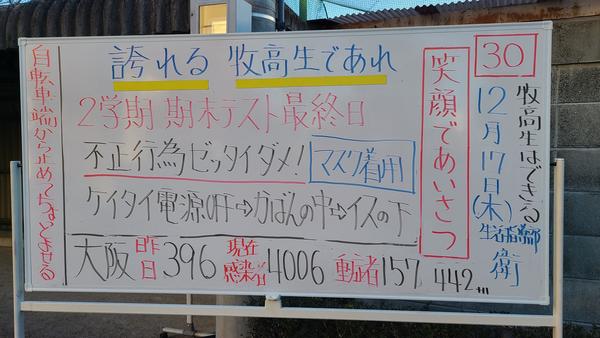 30
牧高生はできる
12月17日(木)
生活指導部
衛
笑顔であいさつ
誇れる 牧高生であれ
2学期 期末テスト最終日
不正行為ゼッタイダメ!
マスク着用
ケイタイ電源OFF⇨かばんの中⇨イスの下
大阪 昨日 396 現在感染者 4006 重症者 157
442
自転車端から止めてちゃんとよせる